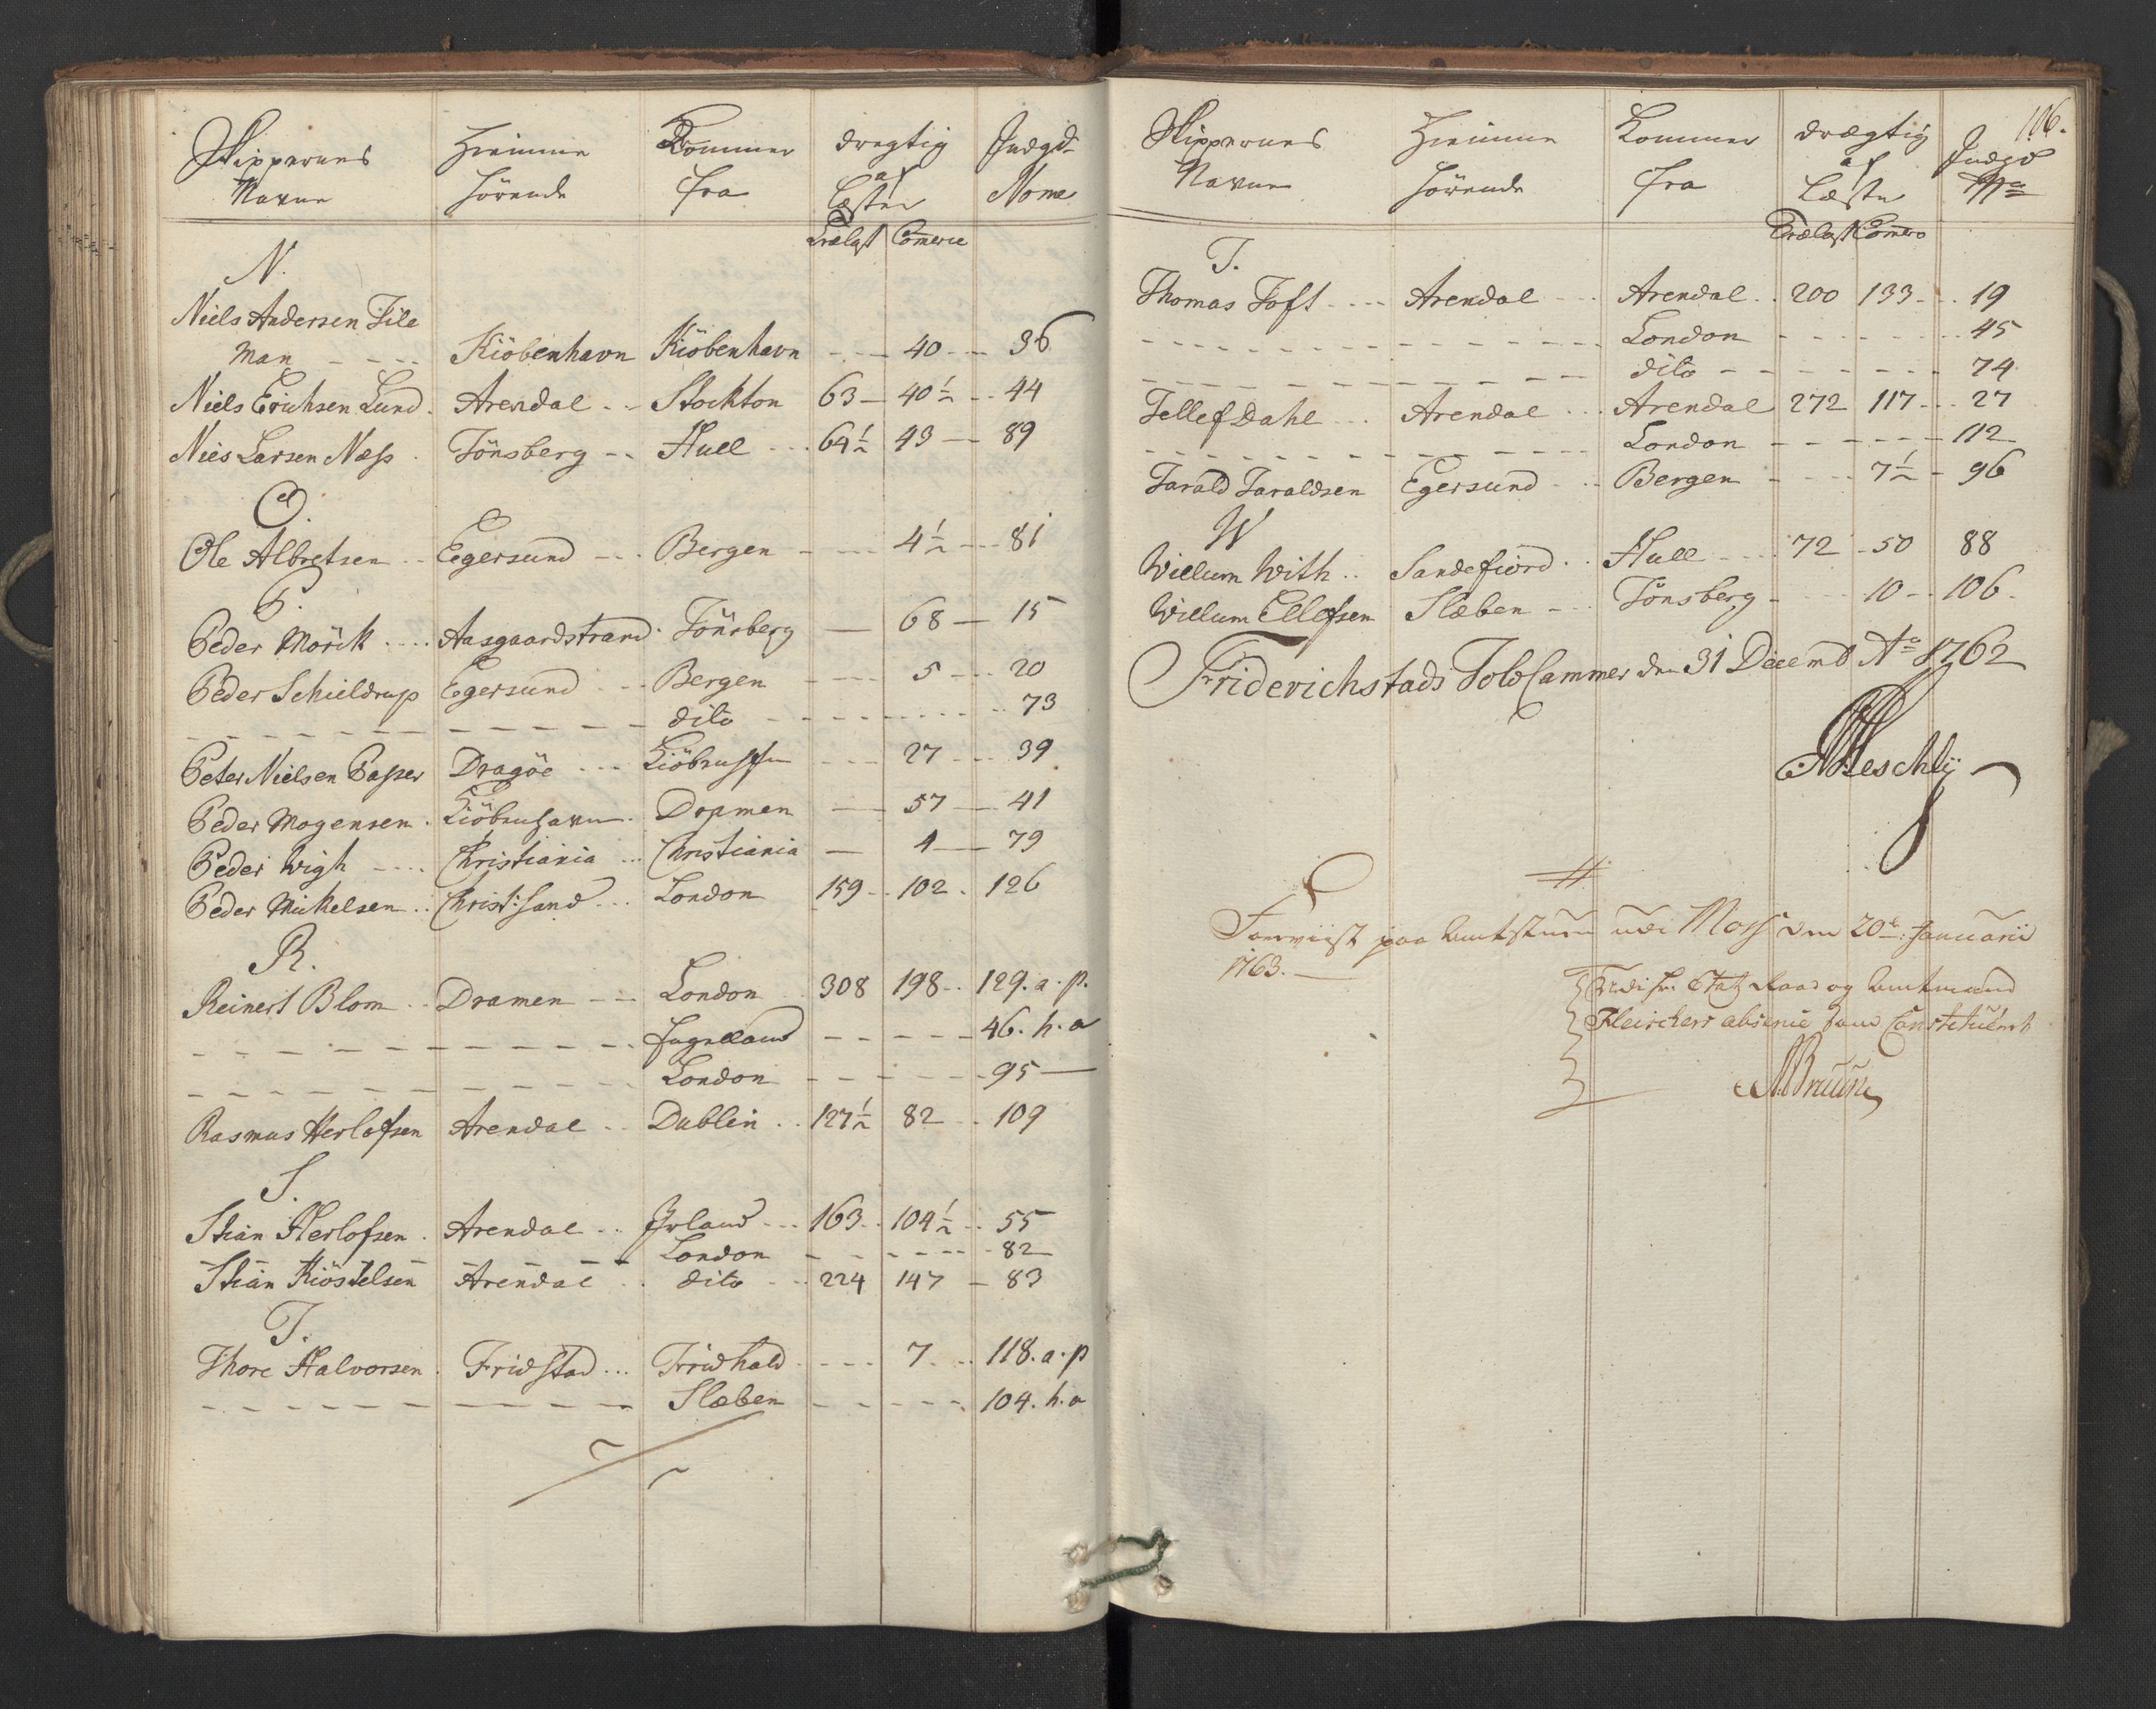 Skippernes Hiemme Kommer drægtig Indgd
Navne hörende fra af Læster Nome
Trælast Comerce
N.
Niels Andersen Tile
man - - - - Kiöbenhavn Kiöbenhavn - - - 40 - - 36
Niels Erichsen Lund . Arendal - - Stockton 63 - 40½ - - 44
Niels Larsen Næss . Tönsberg - - Hull - - - 64½ 43 - 89
O.
Ole Albretsen - - Egersund - - - Bergen - - - - 4½ - - 81
P.
Peder Mörck . . . . Aasgaardstrand . Tönsberg — 68 — 15
Peder Schieldrup Egersund - - - Bergen - - - - 5 - - - 20
- - - - - - - - - - - dito - - - - - - - - - 73
Peter Nielsen Passer Dragöe - - - Kiöbenhafn - - - 27 - - - 39
Peder Mogensen . Kiöbenhavn . Dopmen — 57 — 41
Peder Wigh - - - - Christiania . . . Christiania — 4 — 79
Peder Mickelsen . . Christ:sand . . . London 159 - - 102 . 126
R.
Reinert Blom - - Dramen - - - London . 308 198 - . 129. a. p.
- - - - - - - - - - - Engelland - - - - - 46. h. a
- - - - - - - - - - - London - - - - - - 95 —
Rasmus Herlofsen Arendal - - Dublin . . 127½ 82 - . 109
S.
Stian Herlofsen . Arendal . . Irland - - - 163 . . 104½ - - 55
- - - - - - - London - - - - - - 82
Stian Kiöstelsen Arendal . . dito - - - 224 147 - 83
T.
Thore Halvorsen . Fridstad . . . Fridhald . - - - 7 . . . 118. a. p
- - - - - - - - - - - Slæben - - - - - 104. h. a
106.
Skippernes Hiemme Kommer drægtig Indgd
Navne hörende fra af Læste No
Trælast Comerc
T.
Thomas Toft - - - - Arendal - - - Arendal . . 200 133 - - . 19
- - - - - - - - - - - London - - - - - - - 45
- - - - - - - - - - - dito - - - - - - - 74
Tellef Dahl . . . Arendal . . . Arendal 272 117 - - . 27
- - - - - - - - - - - London - - - - - - 112
Tarald Taraldsen Egersund - . . Bergen - - - - 7½ - 96
W
Willum With . . Sandefiord . . Hull - - - 72 - 50 88
Willum Ellefsen Slæben - - - Tönsberg - - - 10 - - 106 .
Friderichstads Told Cammer den 31 Decemb Ao 1762
Foreviist paa Amtstuen udi Moss den 20de Januarii
1763. —
Etatz Raad og Amtmand
Fleischers absence som Constitueret
Bruun